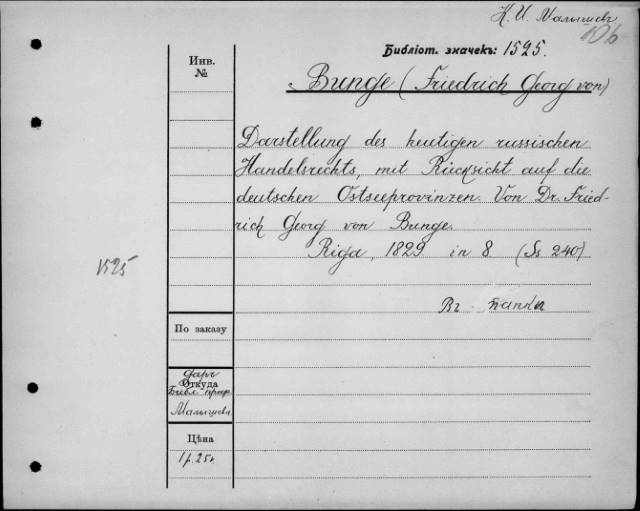 К. И. Малышевъ
106
Библіот. значекъ: 1525.
Инв.
№
Bunge (Friedrich Georg von)
Darstellung des heutigen russischen
Handelsrechts, mit Rücksicht auf die
deutschen Ostseeprovinzen. Von Dr. Fried-
rich Georg von Bunge.
Riga, 1829 in 8 (Ss 240)
1525
Въ папкѣ
По заказу
даръ
Откуда
Библ. проф.
Малышева
Цѣна
1 р. 25 к.